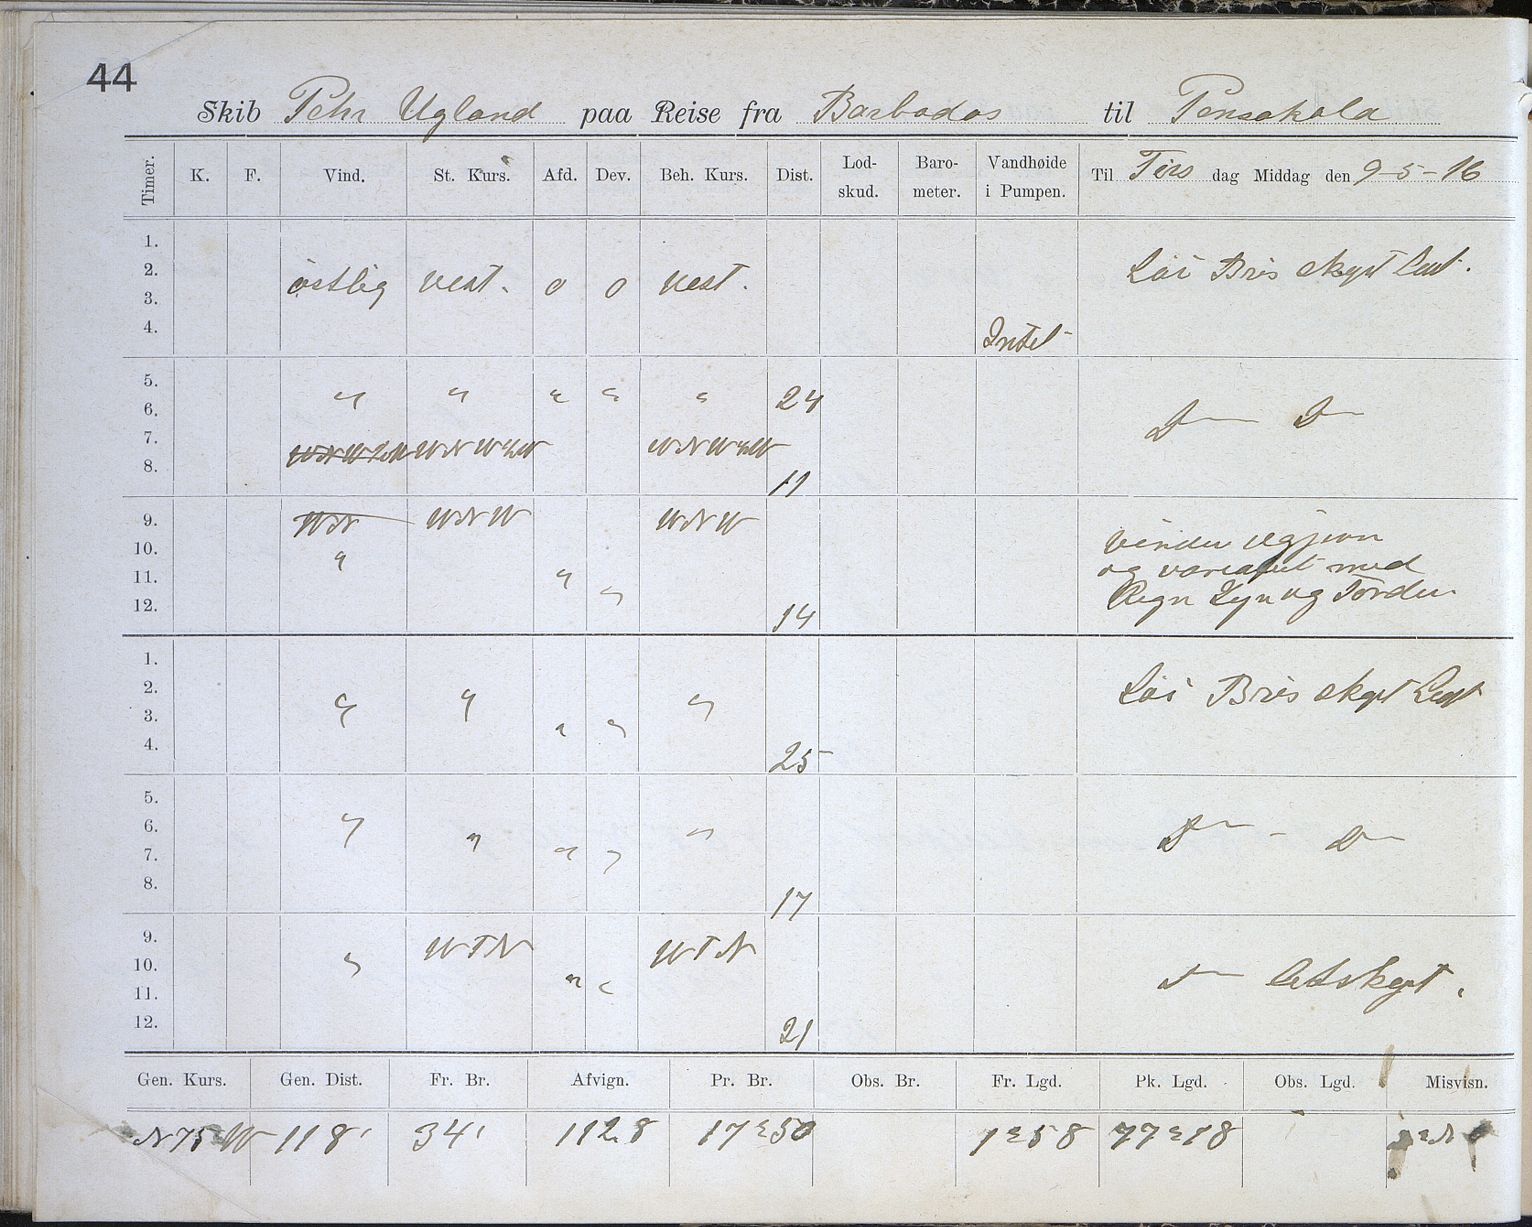 44
Skib Pehr Ugland paa Reise fra Barbados til Pensakola
Timer. K. F. Vind. St. Kurs. Afd. Dev. Beh. Kurs. Dist. Lod-skud. Baro-meter. Vandhøide i Pumpen. Til Tirs dag Middag den 9-5-16
1.
2. östlig vest. 0 0 vest. Löi Bris skyet Luft.
3.
4. Intet
5. " " " " " 24
6. D— D—
7. WNW
8. 11
9. WNW WNW
10. " Vinden ugjevn
11. " " og variabel med
12. 14 Regn Lyn og Torden.
1.
2. " " " Löi Bris skyet Luft
3. " "
4. 25
5.
6. " " " D— - D—
7. " "
8. 17
9. WTN WTN
10. " " D— Letskyet.
11. "
12. 21
Gen. Kurs. Gen. Dist. Fr. Br. Afvign. Pr. Br. Obs. Br. Fr. Lgd. Pk. Lgd. Obs. Lgd. Misvisn.
N 75 W 118' 34' 112.8 17°50 1°58 77°18